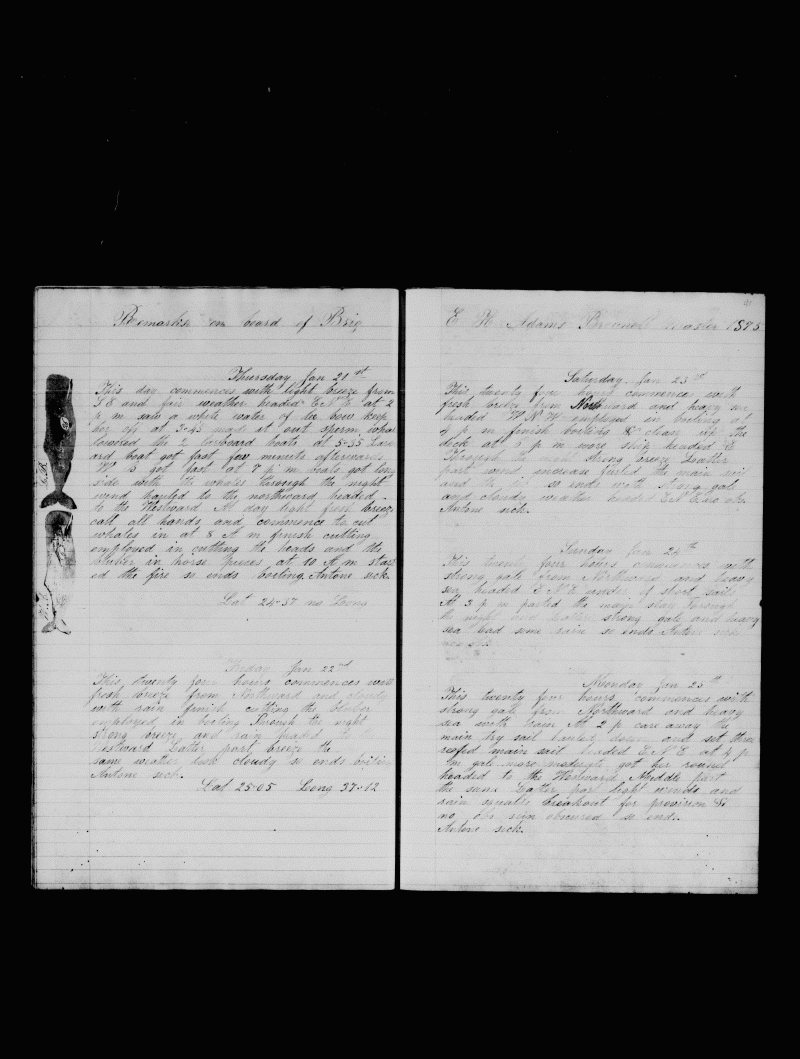 Remarks on board of Brig
Thursday Jan 21st
This day commences with light breeze from
S E and fair weather headed E N E at 2
p m saw a white water of lee bow kept
her off at 3-45 made it out sperm whales
lowered the 2 larboard boats at 5-35 Larb
oard boat got fast few minuts afterwards
W B got fast at 7 p m boats got long
side with the whales through the night
wind hauled to the northward headed
to the Westward At day light fresh breeze
call all hands and commence to cut
whales in at 8 A m finish cutting
employed in cutting the heads and the
bluber in horse pieces at 10 A m start
ed the fire so ends boiling Antone sick.
Lat 24-37 no Long
Friday Jan 22nd
This twenty four hours commences with
fresh breeze from Northward and cloudy
with rain finish cutting the bluber
employed in boiling Through the night
strong breeze and rain headed to the
Westward Latter part breeze the
same weather look cloudy so ends boiling
Antone sick.
Lat 25-05 Long 37-12
E H Adams Master 1875
Saturday Jan 23rd
This twenty four hours commence with
fresh breeze from Northward and heavy sea
headed W N W employed in boiling at
4 p m finish boiling & clear up the
deck at 5 p m wore ship headed E
Through the night strong breeze Latter
part wind increase furled the main sail
and the jib so ends with strong gale
and cloudy weather headed E N E no obs.
Antone sick.
Sunday Jan 24th
This twenty four hours commences with
strong gale from Northward and heavy
sea headed E N E under of short sail
At 3 p m parted the main stay Through
the night and Latter strong gale and heavy
sea had some rain so ends Antone sick
Monday Jan 25th
This twenty four hours commences with
strong gale from Northward and heavy
sea with rain At 2 p care away the
main try sail hauled down and set three
reefed main sail headed E N E at 4 p
m gale more moderate got her round
headed to the Westward Middle part
the same Latter part light winds and
rain squalls breakout for provision &c
no obs sun obscured so ends
Antone sick.